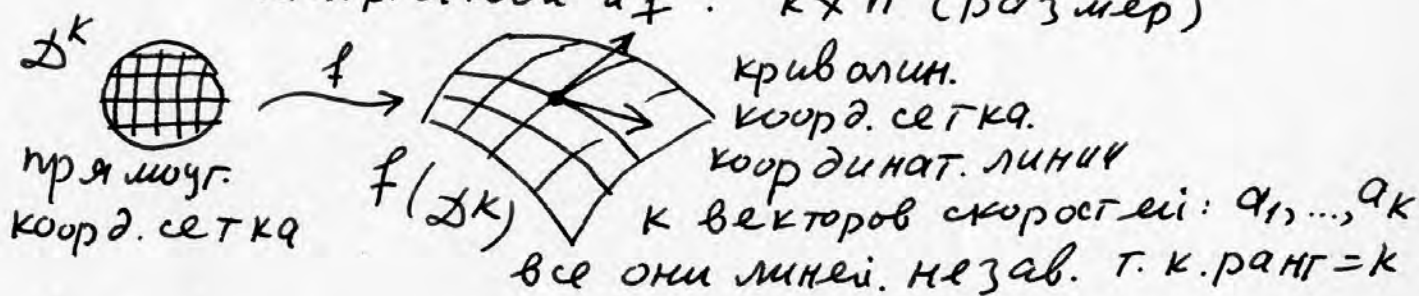 df : k × n (размер)
D^k
f
криволин.
коорд. сетка.
прямоуг.
коорд. сетка
f(D^k)
координат. линии
k векторов скоростей: a₁, ..., aₖ
все они линей. незав. т.к. ранг = k